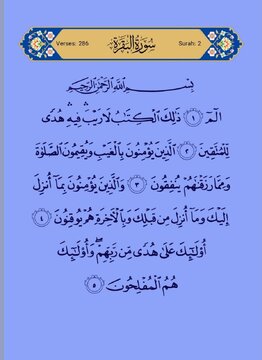 Verses: 286 سُورَةُ البَقَرَةِ Surah: 2
بِسْمِ اللَّهِ الرَّحْمَٰنِ الرَّحِيمِ
الٓمٓ ۝١ ذَٰلِكَ الْكِتَابُ لَا رَيْبَ ۛ فِيهِ ۛ هُدًى
لِّلْمُتَّقِينَ ۝٢ الَّذِينَ يُؤْمِنُونَ بِالْغَيْبِ وَيُقِيمُونَ الصَّلَاةَ
وَمِمَّا رَزَقْنَاهُمْ يُنفِقُونَ ۝٣ وَالَّذِينَ يُؤْمِنُونَ بِمَا أُنزِلَ
إِلَيْكَ وَمَا أُنزِلَ مِن قَبْلِكَ وَبِالْآخِرَةِ هُمْ يُوقِنُونَ ۝٤
أُولَٰئِكَ عَلَىٰ هُدًى مِّن رَّبِّهِمْ ۖ وَأُولَٰئِكَ
هُمُ الْمُفْلِحُونَ ۝٥